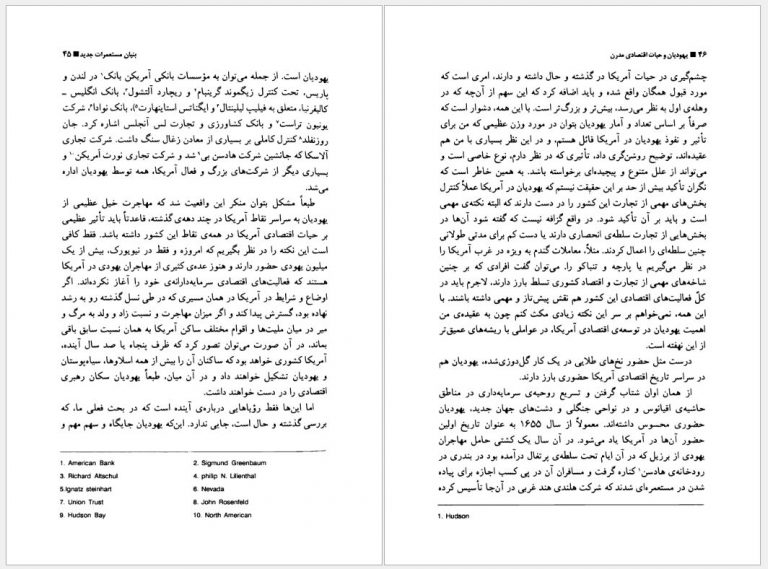 بنیان مستعمرات جدید ■ ۴۵
یهودیان است. از جمله می‌توان به مؤسسات بانکی آمریکن بانک۱ در لندن و
پاریس، تحت کنترل زیگموند گرینبام۲ و ریچارد آلتشول۳، بانک انگلیس ـ
کالیفرنیا، متعلق به فیلیپ لیلینتال۴ و ایگناتس استاینهارت۵، بانک نوادا۶، شرکت
یونیون تراست۷ و بانک کشاورزی و تجارت لس آنجلس اشاره کرد. جان
روزنفلد۸ کنترل کاملی بر بسیاری از معادن زغال سنگ داشت. شرکت تجاری
آلاسکا که جانشین شرکت هادسن بی۹ شد و شرکت تجاری نورت آمریکن۱۰ و
بسیاری دیگر از شرکت‌های بزرگ و فعال آمریکا، همه توسط یهودیان اداره
می‌شد.
طبعاً مشکل بتوان منکر این واقعیت شد که مهاجرت خیل عظیمی از
یهودیان به سراسر نقاط آمریکا در چند دهه‌ی گذشته، قاعدتاً باید تأثیر عظیمی
بر حیات اقتصادی آمریکا در همه‌ی نقاط این کشور داشته باشد. فقط کافی
است این نکته را در نظر بگیریم که امروزه و فقط در نیویورک، بیش از یک
میلیون یهودی حضور دارند و هنوز عده‌ی کثیری از مهاجران یهودی در آمریکا
هستند که فعالیت‌های اقتصادی سرمایه‌دارانه‌ی خود را آغاز نکرده‌اند. اگر
اوضاع و شرایط در آمریکا در همان مسیری که در طی نسل گذشته رو به رشد
نهاده بود، گسترش پیدا کند و اگر میزان مهاجرت و نسبت زاد و ولد به مرگ و
میر در میان ملیت‌ها و اقوام مختلف ساکن آمریکا به همان نسبت سابق باقی
بماند، در آن صورت می‌توان تصور کرد که ظرف پنجاه یا صد سال آینده،
آمریکا کشوری خواهد بود که ساکنان آن را بیش از همه اسلاوها، سیاه‌پوستان
و یهودیان تشکیل خواهند داد و در آن میان، طبعاً یهودیان سکان رهبری
اقتصادی را در دست خواهند داشت.
اما این‌ها فقط رؤیاهایی درباره‌ی آینده است که در بحث فعلی ما، که
بررسی گذشته و حال است، جایی ندارد. این‌که یهودیان جایگاه و سهم مهم و
1. American Bank 2. Sigmund Greenbaum
3. Richard Altschul 4. philip N. Lilienthal
5.Ignatz steinhart 6. Nevada
7. Union Trust 8. John Rosenfeld
9. Hudson Bay 10. North American
۴۶ ■ یهودیان و حیات اقتصادی مدرن
چشم‌گیری در حیات آمریکا در گذشته و حال داشته و دارند، امری است که
مورد قبول همگان واقع شده و باید اضافه کرد که این سهم از آن‌چه که در
وهله‌ی اول به نظر می‌رسد، بیش‌تر و بزرگ‌تر است. با این همه، دشوار است که
صرفاً بر اساس تعداد و آمار یهودیان بتوان در مورد وزن عظیمی که من برای
تأثیر و نفوذ یهودیان در آمریکا قائل هستم، و در این نظر بسیاری با من هم
عقیده‌اند، توضیح روشن‌گری داد، تأثیری که در نظر دارم، نوع خاصی است و
می‌تواند از علل متنوع و پیچیده‌ای برخواسته باشد. به همین خاطر است که
نگران تأکید بیش از حد بر این حقیقت نیستم که یهودیان در آمریکا عملاً کنترل
بخش‌های مهمی از تجارت این کشور را در دست دارند که البته نکته‌ی مهمی
است و باید بر آن تأکید شود. در واقع گزافه نیست که گفته شود آن‌ها در
بخش‌هایی از تجارت سلطه‌ی انحصاری دارند یا دست کم برای مدتی طولانی
چنین سلطه‌ای را اعمال کردند. مثلاً، معاملات گندم به ویژه در غرب آمریکا را
در نظر می‌گیریم یا پارچه و تنباکو را. می‌توان گفت افرادی که بر چنین
شاخه‌های مهمی از تجارت و اقتصاد کشوری تسلط بارز دارند، لاجرم باید در
کلّ فعالیت‌های اقتصادی این کشور هم نقش پیش‌تاز و مهمی داشته باشند. با
این همه، نمی‌خواهم بر سر این نکته زیادی مکث کنم چون به عقیده‌ی من
اهمیت یهودیان در توسعه‌ی اقتصادی آمریکا، در عواملی با ریشه‌های عمیق‌تر
از این نهفته است.
درست مثل حضور نخ‌های طلایی در یک کار گل‌دوزی‌شده، یهودیان هم
در سراسر تاریخ اقتصادی آمریکا حضوری بارز دارند.
از همان اوان شتاب گرفتن و تسریع روحیه‌ی سرمایه‌داری در مناطق
حاشیه‌ی اقیانوس و در نواحی جنگلی و دشت‌های جهان جدید، یهودیان
حضوری محسوس داشته‌اند. معمولاً از سال ۱۶۵۵ به عنوان تاریخ اولین
حضور آن‌ها در آمریکا یاد می‌شود. در آن سال یک کشتی حامل مهاجران
یهودی از برزیل که در آن ایام تحت سلطه‌ی پرتغال درآمده بود در بندری در
رودخانه‌ی هادسن۱ کناره گرفت و مسافران آن در پی کسب اجازه برای پیاده
شدن در مستعمره‌ای شدند که شرکت هلندی هند غربی در آن‌جا تأسیس کرده
1. Hudson